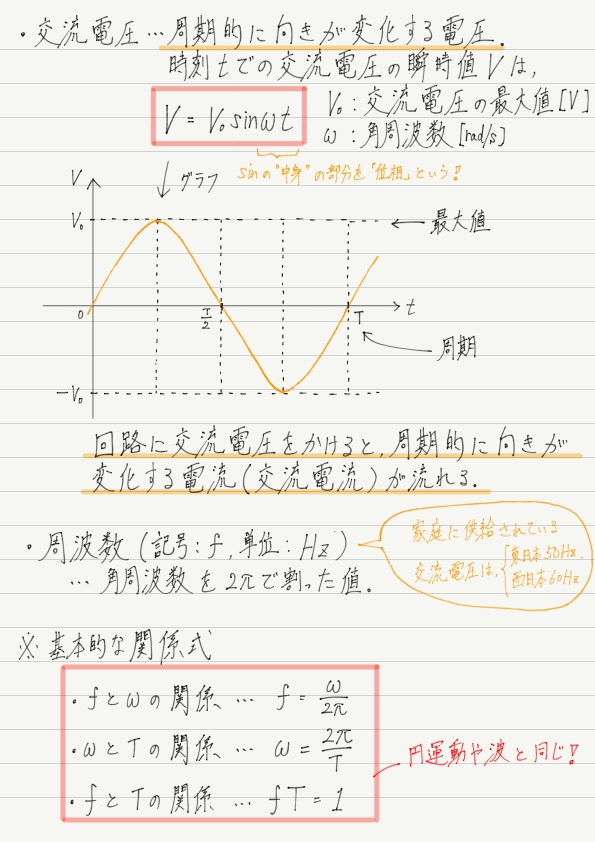 ・交流電圧…周期的に向きが変化する電圧.
時刻tでの交流電圧の瞬時値Vは,
V = V₀sinωt
V₀:交流電圧の最大値[V]
ω:角周波数[rad/s]
sinの"中身"の部分を「位相」という!
グラフ
V
V₀
最大値
0
T/2
T
t
周期
-V₀
回路に交流電圧をかけると,周期的に向きが
変化する電流(交流電流)が流れる.
・周波数(記号:f,単位:Hz)
…角周波数を2πで割った値.
家庭に供給されている
交流電圧は,{東日本50Hz,
西日本60Hz
※基本的な関係式
・fとωの関係… f = ω/2π
・ωとTの関係… ω = 2π/T
・fとTの関係… fT = 1
円運動や波と同じ!